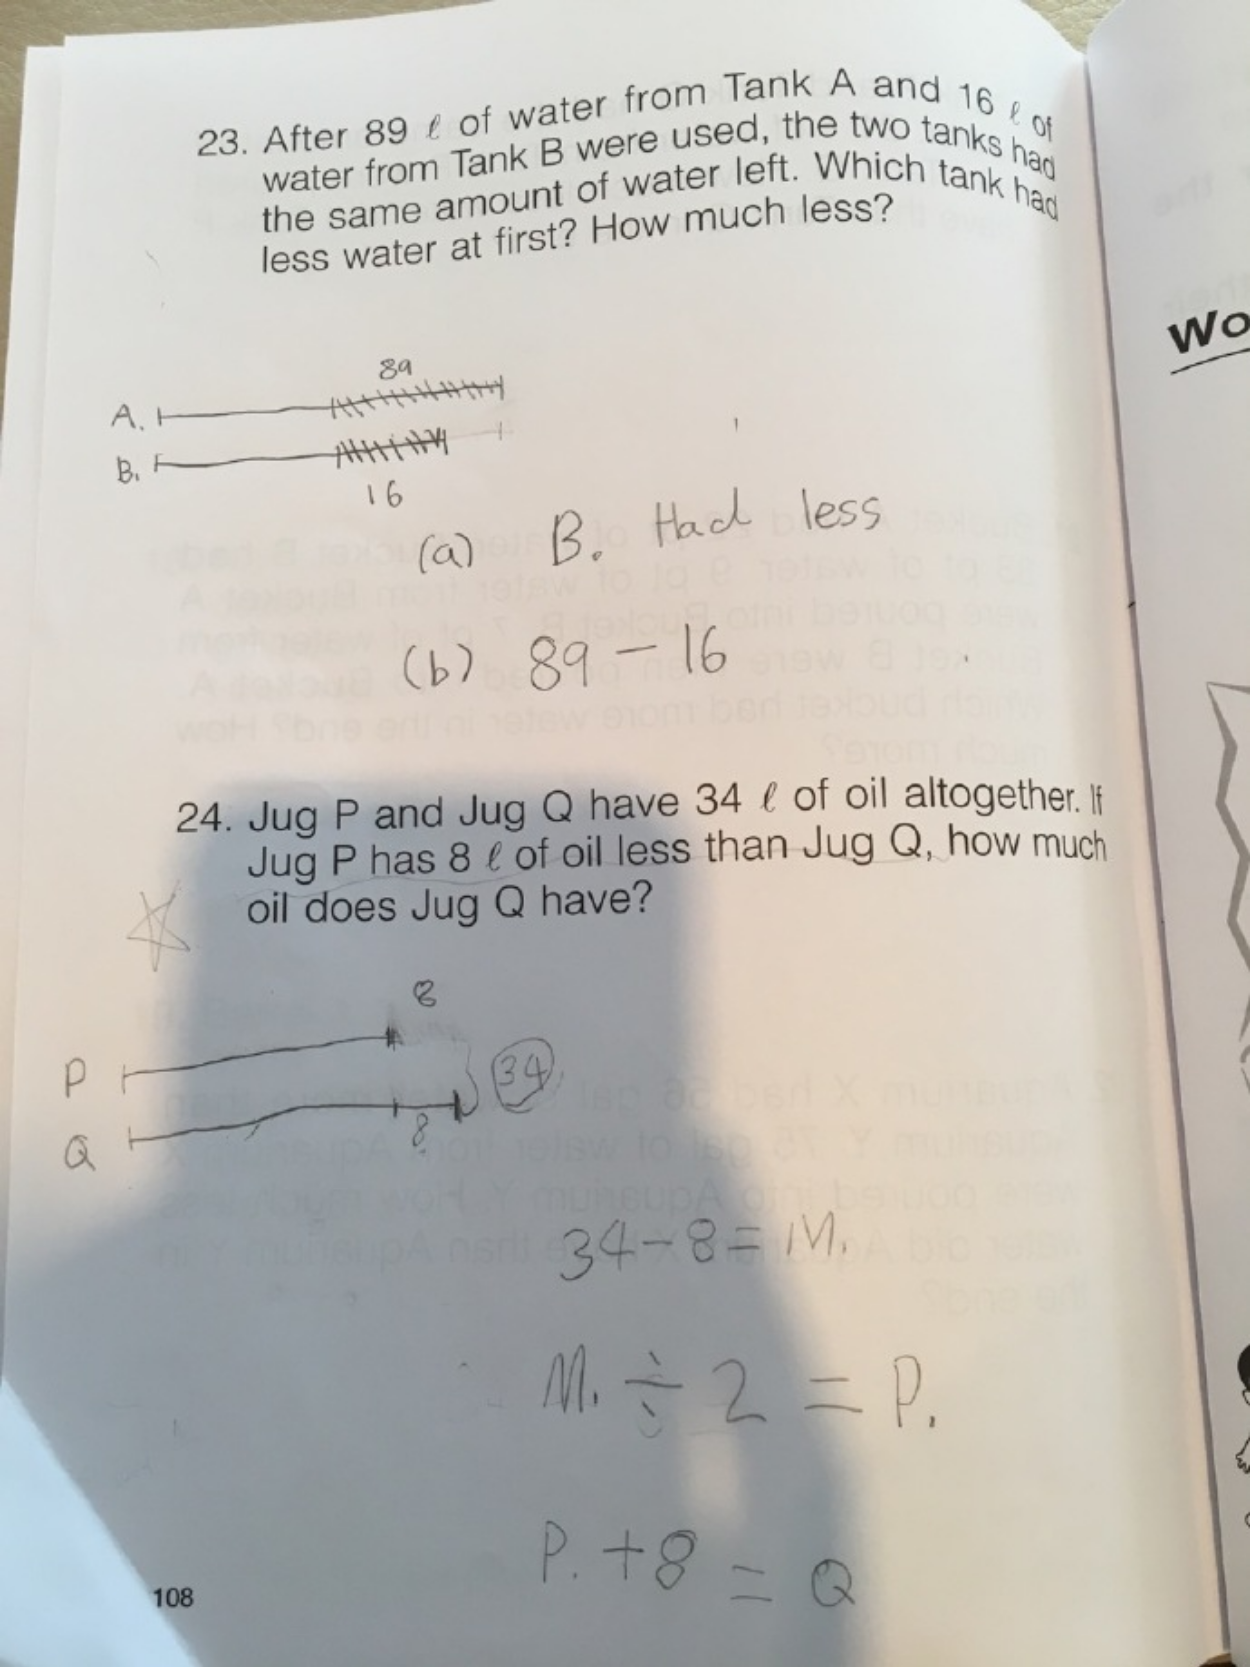 23. After 89 ℓ of water from Tank A and 16 ℓ of
water from Tank B were used, the two tanks had
the same amount of water left. Which tank had
less water at first? How much less?
89
A.
B.
16
(a) B. Had less
(b) 89 - 16
24. Jug P and Jug Q have 34 ℓ of oil altogether. If
Jug P has 8 ℓ of oil less than Jug Q, how much
oil does Jug Q have?
8
P
34
Q
8
34 - 8 = M.
M. ÷ 2 = P.
P. + 8 = Q
108
Wo